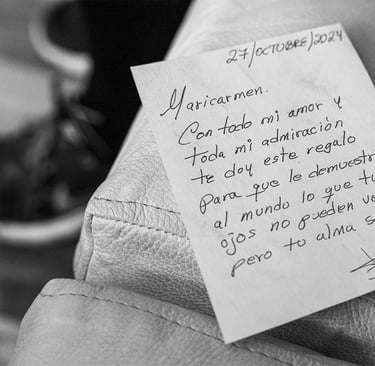 27/OCTUBRE/2024
Maricarmen.
Con todo mi amor y
toda mi admiración
te doy este regalo
para que le demuestr
al mundo lo que tu
ojos no pueden ve
pero tu alma s